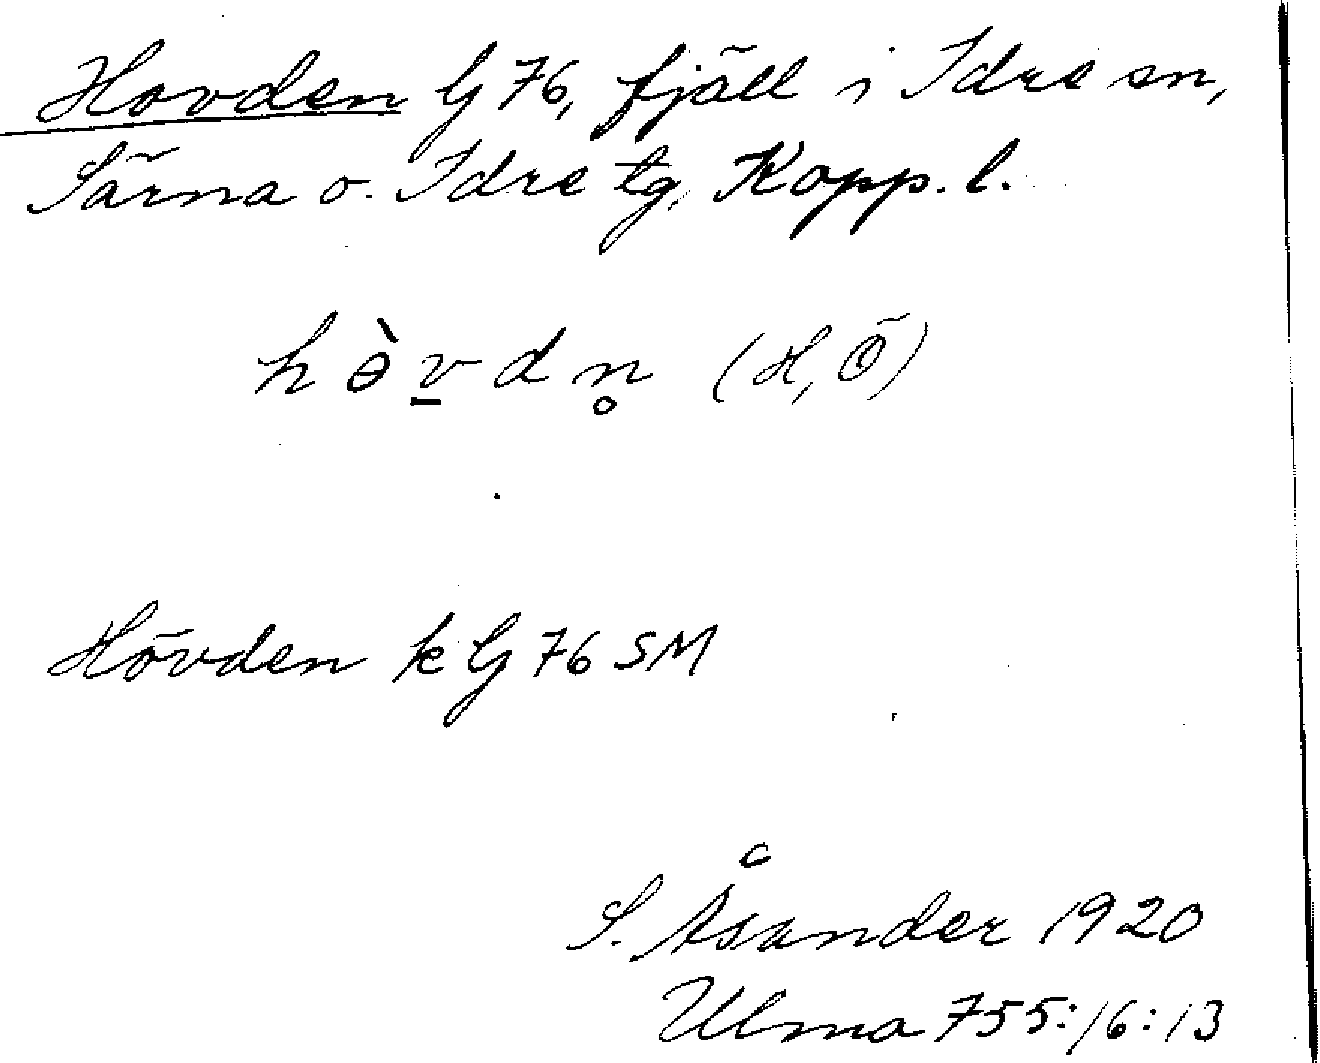 Hovden G 76, fjäll i Idre sn,
Särna o. Idre tg, Kopp. l.
hə̀v̲dn̥ (H, Ö)
Hövden k G 76 SM
S. Åsander 1920
Ulma 755:16:13